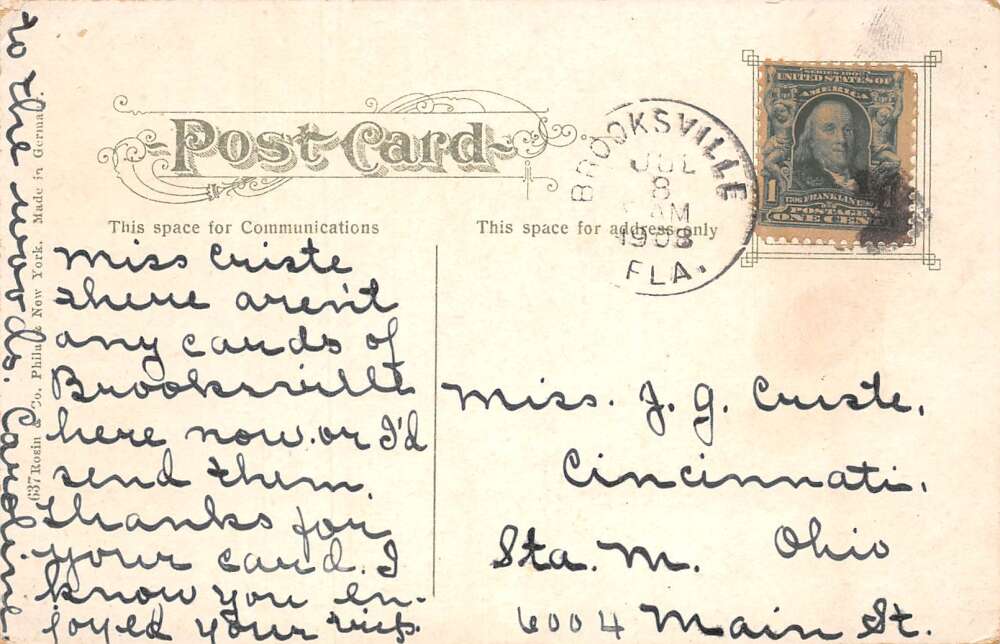 Post Card
This space for Communications
This space for address only
BROOKSVILLE
JUL
8
AM
1908
FLA.
SERIES 1902
UNITED STATES OF
AMERICA
1
1706 FRANKLIN 1790
POSTAGE
ONE CENT
Miss Criste
there aren't
any cards of
Brooksville
here now. or I'd
send them.
Thanks for
your card. I
know you en-
joyed your
to the
Caroline
637 Rosin & Co. Phila & New York. Made in Germa
Miss. J. G. Criste.
Cincinnati.
Ohio
Sta. M.
6004 Main St.